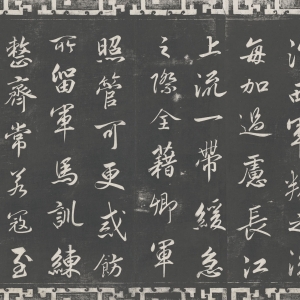 西軍叛之
每加過慮長江
上流一帶緩急
之際全藉卿軍
照管可更戒飭
所留軍馬訓練
整齊常若寇至